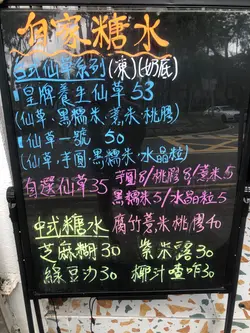 自家糖水
台式仙草系列(凍)(切底)
皇牌養生仙草 53
(仙草,黑糯米,薏米,桃膠)
仙草一號 50
(仙草,芋圓,黑糯米,水晶粒)
自選仙草35 芋圓8/桃膠8/薏米5
黑糯米5/水晶粒5
中式糖水 腐竹薏米桃膠40
芝麻糊30 紫米露30
綠豆沙30 椰汁喳咋30